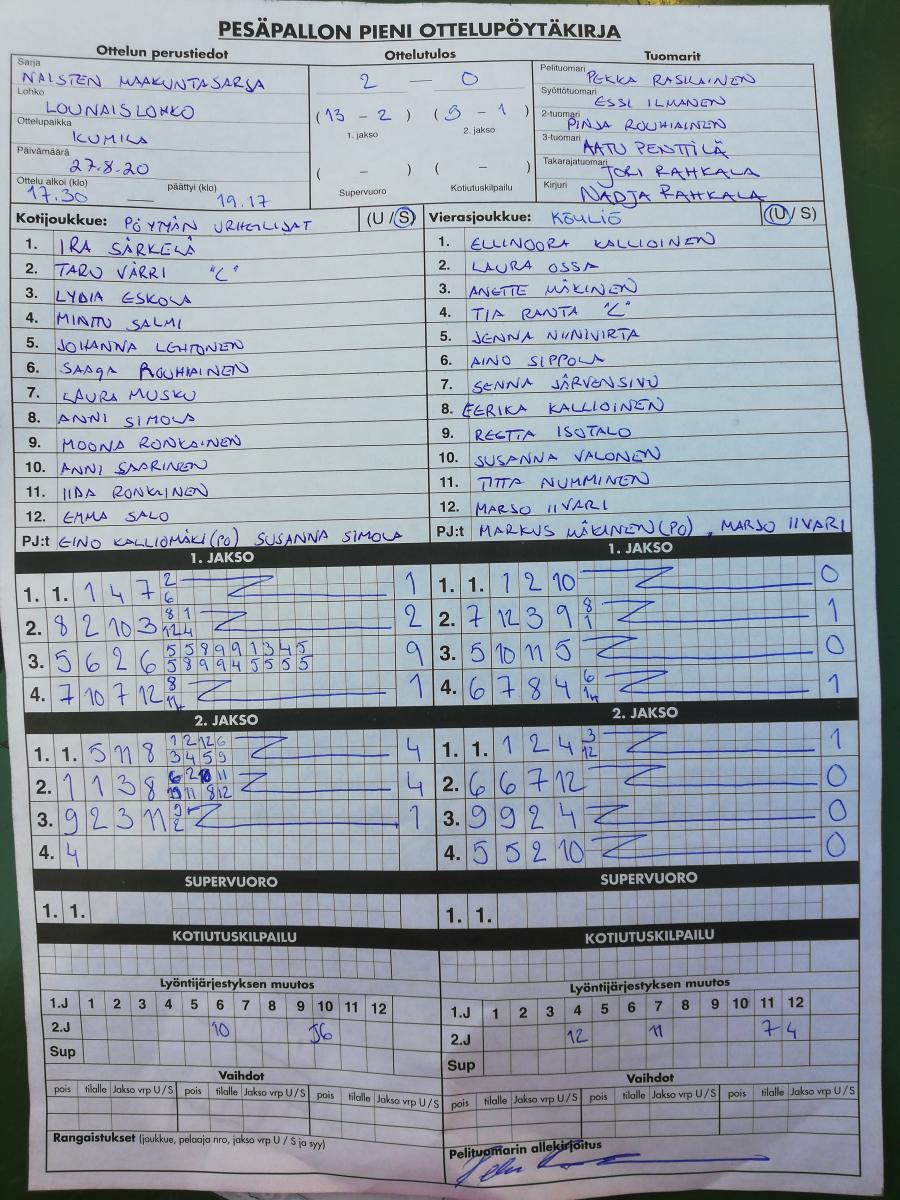 PESÄPALLON PIENI OTTELUPÖYTÄKIRJA
Ottelun perustiedot
Sarja
NAISTEN MAAKUNTASARJA
Lohko
LOUNAISLOHKO
Ottelupaikka
KUMILA
Päivämäärä
27.8.20
Ottelu alkoi (klo) päättyi (klo)
17.30 — 19.17
Ottelutulos
2 — 0
(13 - 2) (9 - 1)
1. jakso 2. jakso
( - ) ( - )
Supervuoro Kotiutuskilpailu
Tuomarit
Pelituomari
PEKKA RASILAINEN
Syöttötuomari
ESSI ILMANEN
2-tuomari
PINJA ROUHIAINEN
3-tuomari
AATU PENTTILÄ
Takarajatuomari
JORI RAHKALA
Kirjuri
NADJA RAHKALA
Kotijoukkue: PÖYTYÄN URHEILIJAT (U / S)
1. IRA SÄRKELÄ
2. TARU VÄRRI "C"
3. LYDIA ESKOLA
4. MINTTU SALMI
5. JOHANNA LEHTONEN
6. SAAGA ROUHIAINEN
7. LAURA MUSKU
8. ANNI SIMOLA
9. MOONA RONKAINEN
10. ANNI SAARINEN
11. IIDA RONKAINEN
12. EMMA SALO
PJ:t EINO KALLIOMÄKI (PO) SUSANNA SIMOLA
Vierasjoukkue: KÖYLIÖ (U / S)
1. ELLINOORA KALLIOINEN
2. LAURA OSSA
3. ANETTE MÄKINEN
4. TIA RANTA "C"
5. JENNA NIINIVIRTA
6. AINO SIPPOLA
7. SENNA JÄRVENSIVU
8. EERIKA KALLIOINEN
9. REETTA ISOTALO
10. SUSANNA VALONEN
11. TITTA NUMMINEN
12. MARJO IIVARI
PJ:t MARKUS MÄKINEN (PO), MARJO IIVARI
1. JAKSO
1. 1. 1 4 7 2 6 1
2. 8 2 10 3 8 1 12 4 2
3. 5 6 2 6 5 5 8 9 9 1 3 4 5 5 8 9 9 4 5 5 5 5 9
4. 7 10 7 12 8 11 1
1. JAKSO
1. 1. 1 2 10 0
2. 7 12 3 9 8 1 1
3. 5 10 11 5 0
4. 6 7 8 4 6 1
2. JAKSO
1. 1. 5 11 8 1 2 12 6 3 4 5 9 4
2. 1 1 3 8 6 2 10 11 11 8 12 4
3. 9 2 3 11 9 2 1
4. 4
2. JAKSO
1. 1. 1 2 4 3 12 1
2. 6 6 7 12 0
3. 9 9 2 4 0
4. 5 5 2 10 0
SUPERVUORO
1. 1.
SUPERVUORO
1. 1.
KOTIUTUSKILPAILU
KOTIUTUSKILPAILU
Lyöntijärjestyksen muutos
1.J 1 2 3 4 5 6 7 8 9 10 11 12
2.J 10 6
Sup
Lyöntijärjestyksen muutos
1.J 1 2 3 4 5 6 7 8 9 10 11 12
2.J 12 11 7 4
Sup
Vaihdot
pois tilalle Jakso vrp U / S pois tilalle Jakso vrp U / S pois tilalle Jakso vrp U / S
Vaihdot
pois tilalle Jakso vrp U / S pois tilalle Jakso vrp U / S pois tilalle Jakso vrp U / S
Rangaistukset (joukkue, pelaaja nro, jakso vrp U / S ja syy)
Pelituomarin allekirjoitus